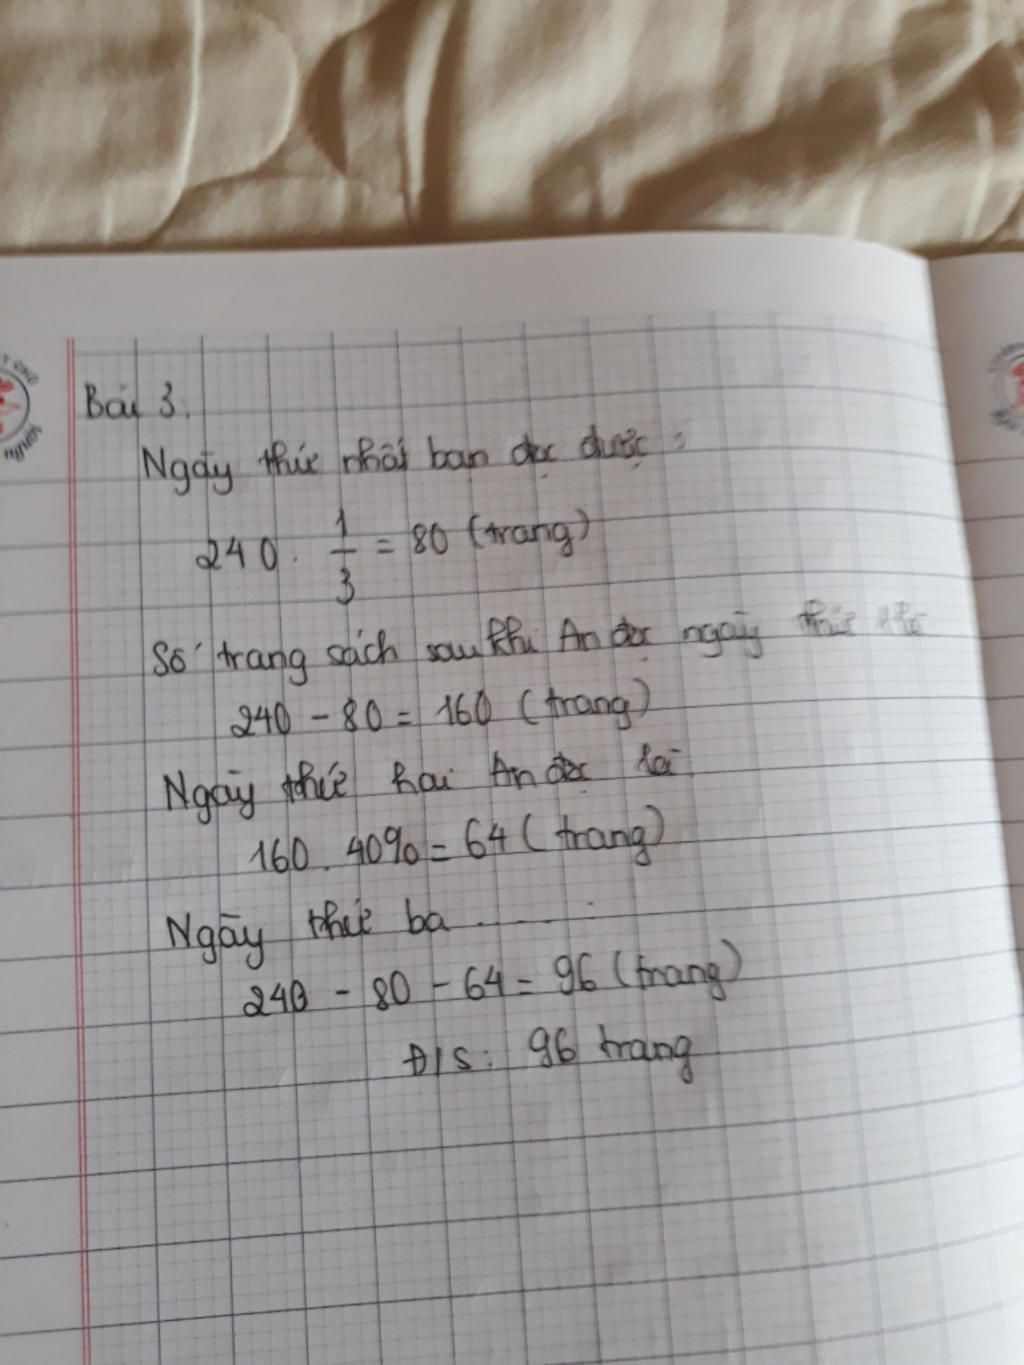 Bài 3.
Ngày thứ nhất bạn đọc được :
240 . 1/3 = 80 (trang)
Số trang sách sau khi An đọc ngày thứ
240 - 80 = 160 (trang)
Ngày thứ hai An đọc là
160 . 40% = 64 (trang)
Ngày thứ ba ....... :
240 - 80 - 64 = 96 (trang)
Đ/S: 96 trang